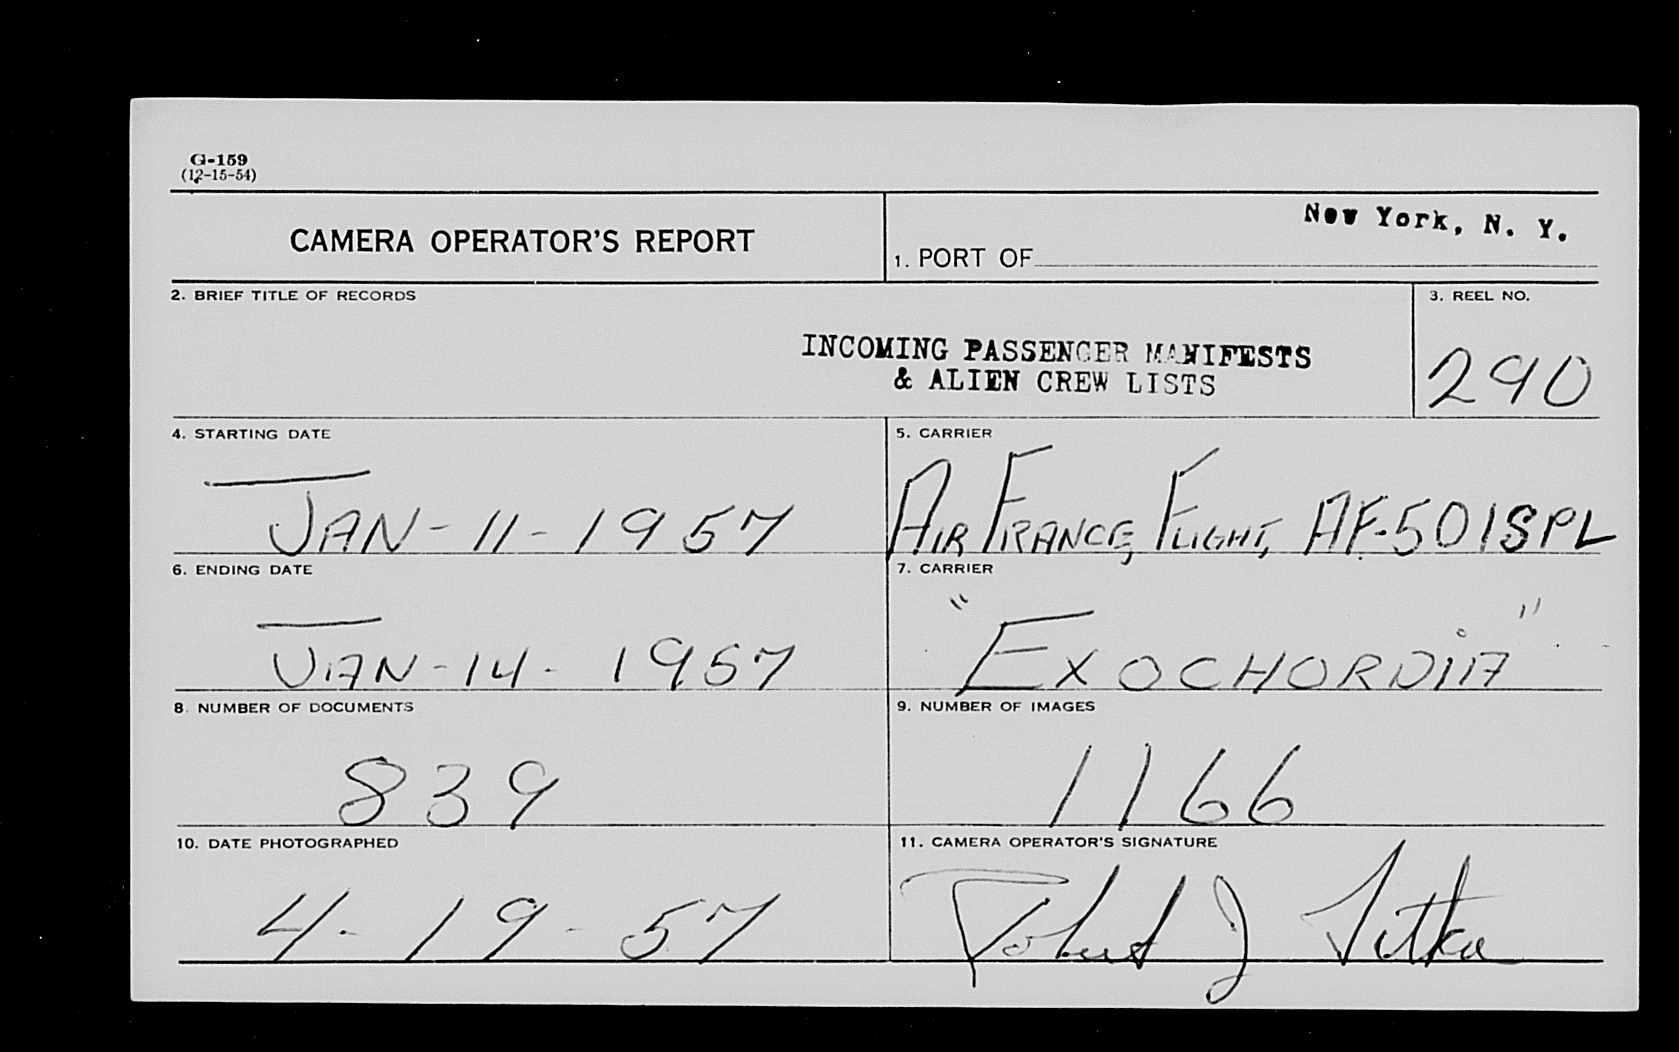 G-159
(12-15-54)
CAMERA OPERATOR'S REPORT
New York, N. Y.
1. PORT OF
2. BRIEF TITLE OF RECORDS
INCOMING PASSENGER MANIFESTS
& ALIEN CREW LISTS
3. REEL NO.
290
4. STARTING DATE
JAN-11-1957
5. CARRIER
AIR FRANCE, FLIGHT, AF-501SPL
6. ENDING DATE
JAN-14-1957
7. CARRIER
"EXOCHORDIA"
8. NUMBER OF DOCUMENTS
839
9. NUMBER OF IMAGES
1166
10. DATE PHOTOGRAPHED
4-19-57
11. CAMERA OPERATOR'S SIGNATURE
Robert J